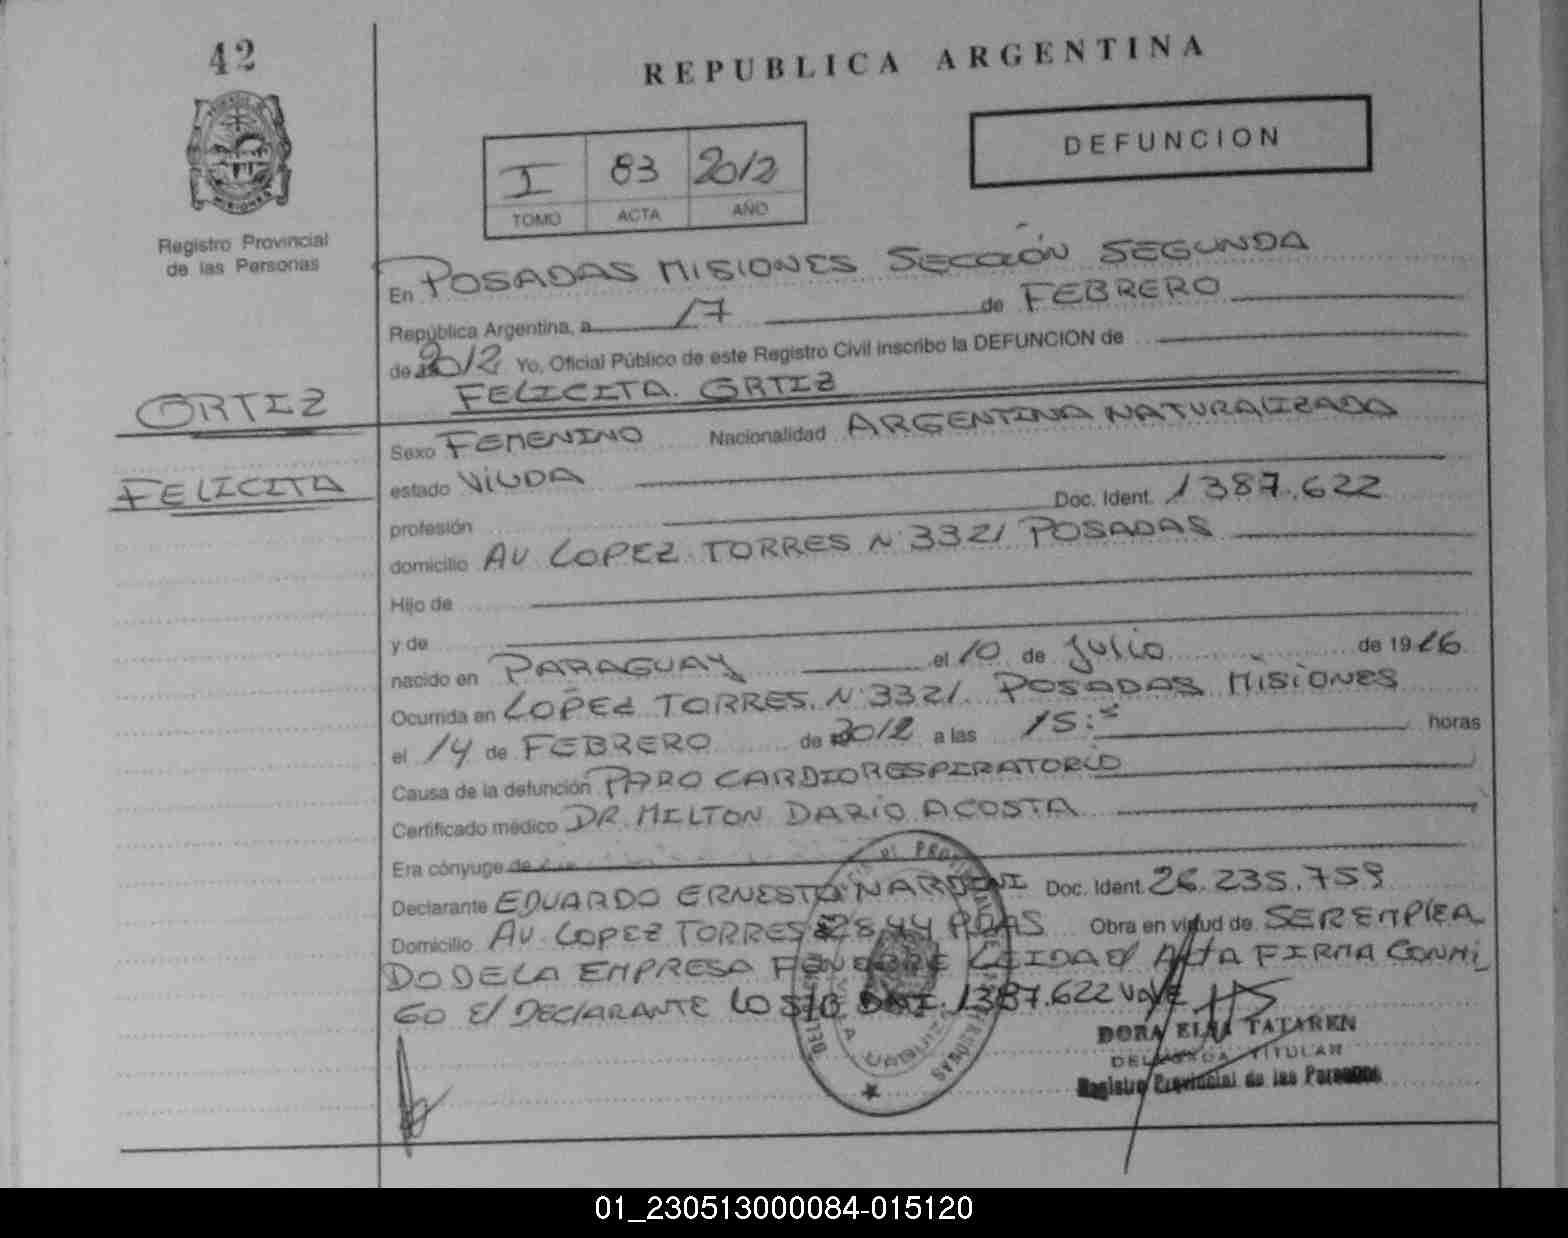 42
REPUBLICA ARGENTINA
DEFUNCION
I 83 2012
TOMO ACTA AÑO
Registro Provincial
de las Personas
En POSADAS MISIONES SECCIÓN SEGUNDA
República Argentina, a 17 de FEBRERO
de 2012 Yo, Oficial Público de este Registro Civil inscribo la DEFUNCION de
FELICITA ORTIZ
ORTIZ
Sexo FEMENINO Nacionalidad ARGENTINA NATURALIZADA
FELICITA
estado VIUDA
profesión Doc. Ident. 1387.622
domicilio AV LOPEZ TORRES N 3321 POSADAS
Hijo de
y de
nacido en PARAGUAY el 10 de Julio de 1926
Ocurrida en LOPEZ TORRES N 3321 POSADAS MISIONES
el 14 de FEBRERO de 2012 a las 15: horas
Causa de la defunción PARO CARDIORESPIRATORIO
Certificado médico DR. MILTON DARIO ACOSTA
Era cónyuge de
Declarante EDUARDO ERNESTO NARDONI Doc. Ident. 26.235.759
Domicilio AV. LOPEZ TORRES 2844 PDAS Obra en virtud de SER EMPLEA
DO DE LA EMPRESA FUNEBRE LEIDA El ACTA FIRMA CONMI
GO El DECLARANTE LO S/B DNI 1387.622 VALE
DORA ELSA TATAREN
DELEGADA TITULAR
Registro Provincial de las Personas
01_230513000084-015120